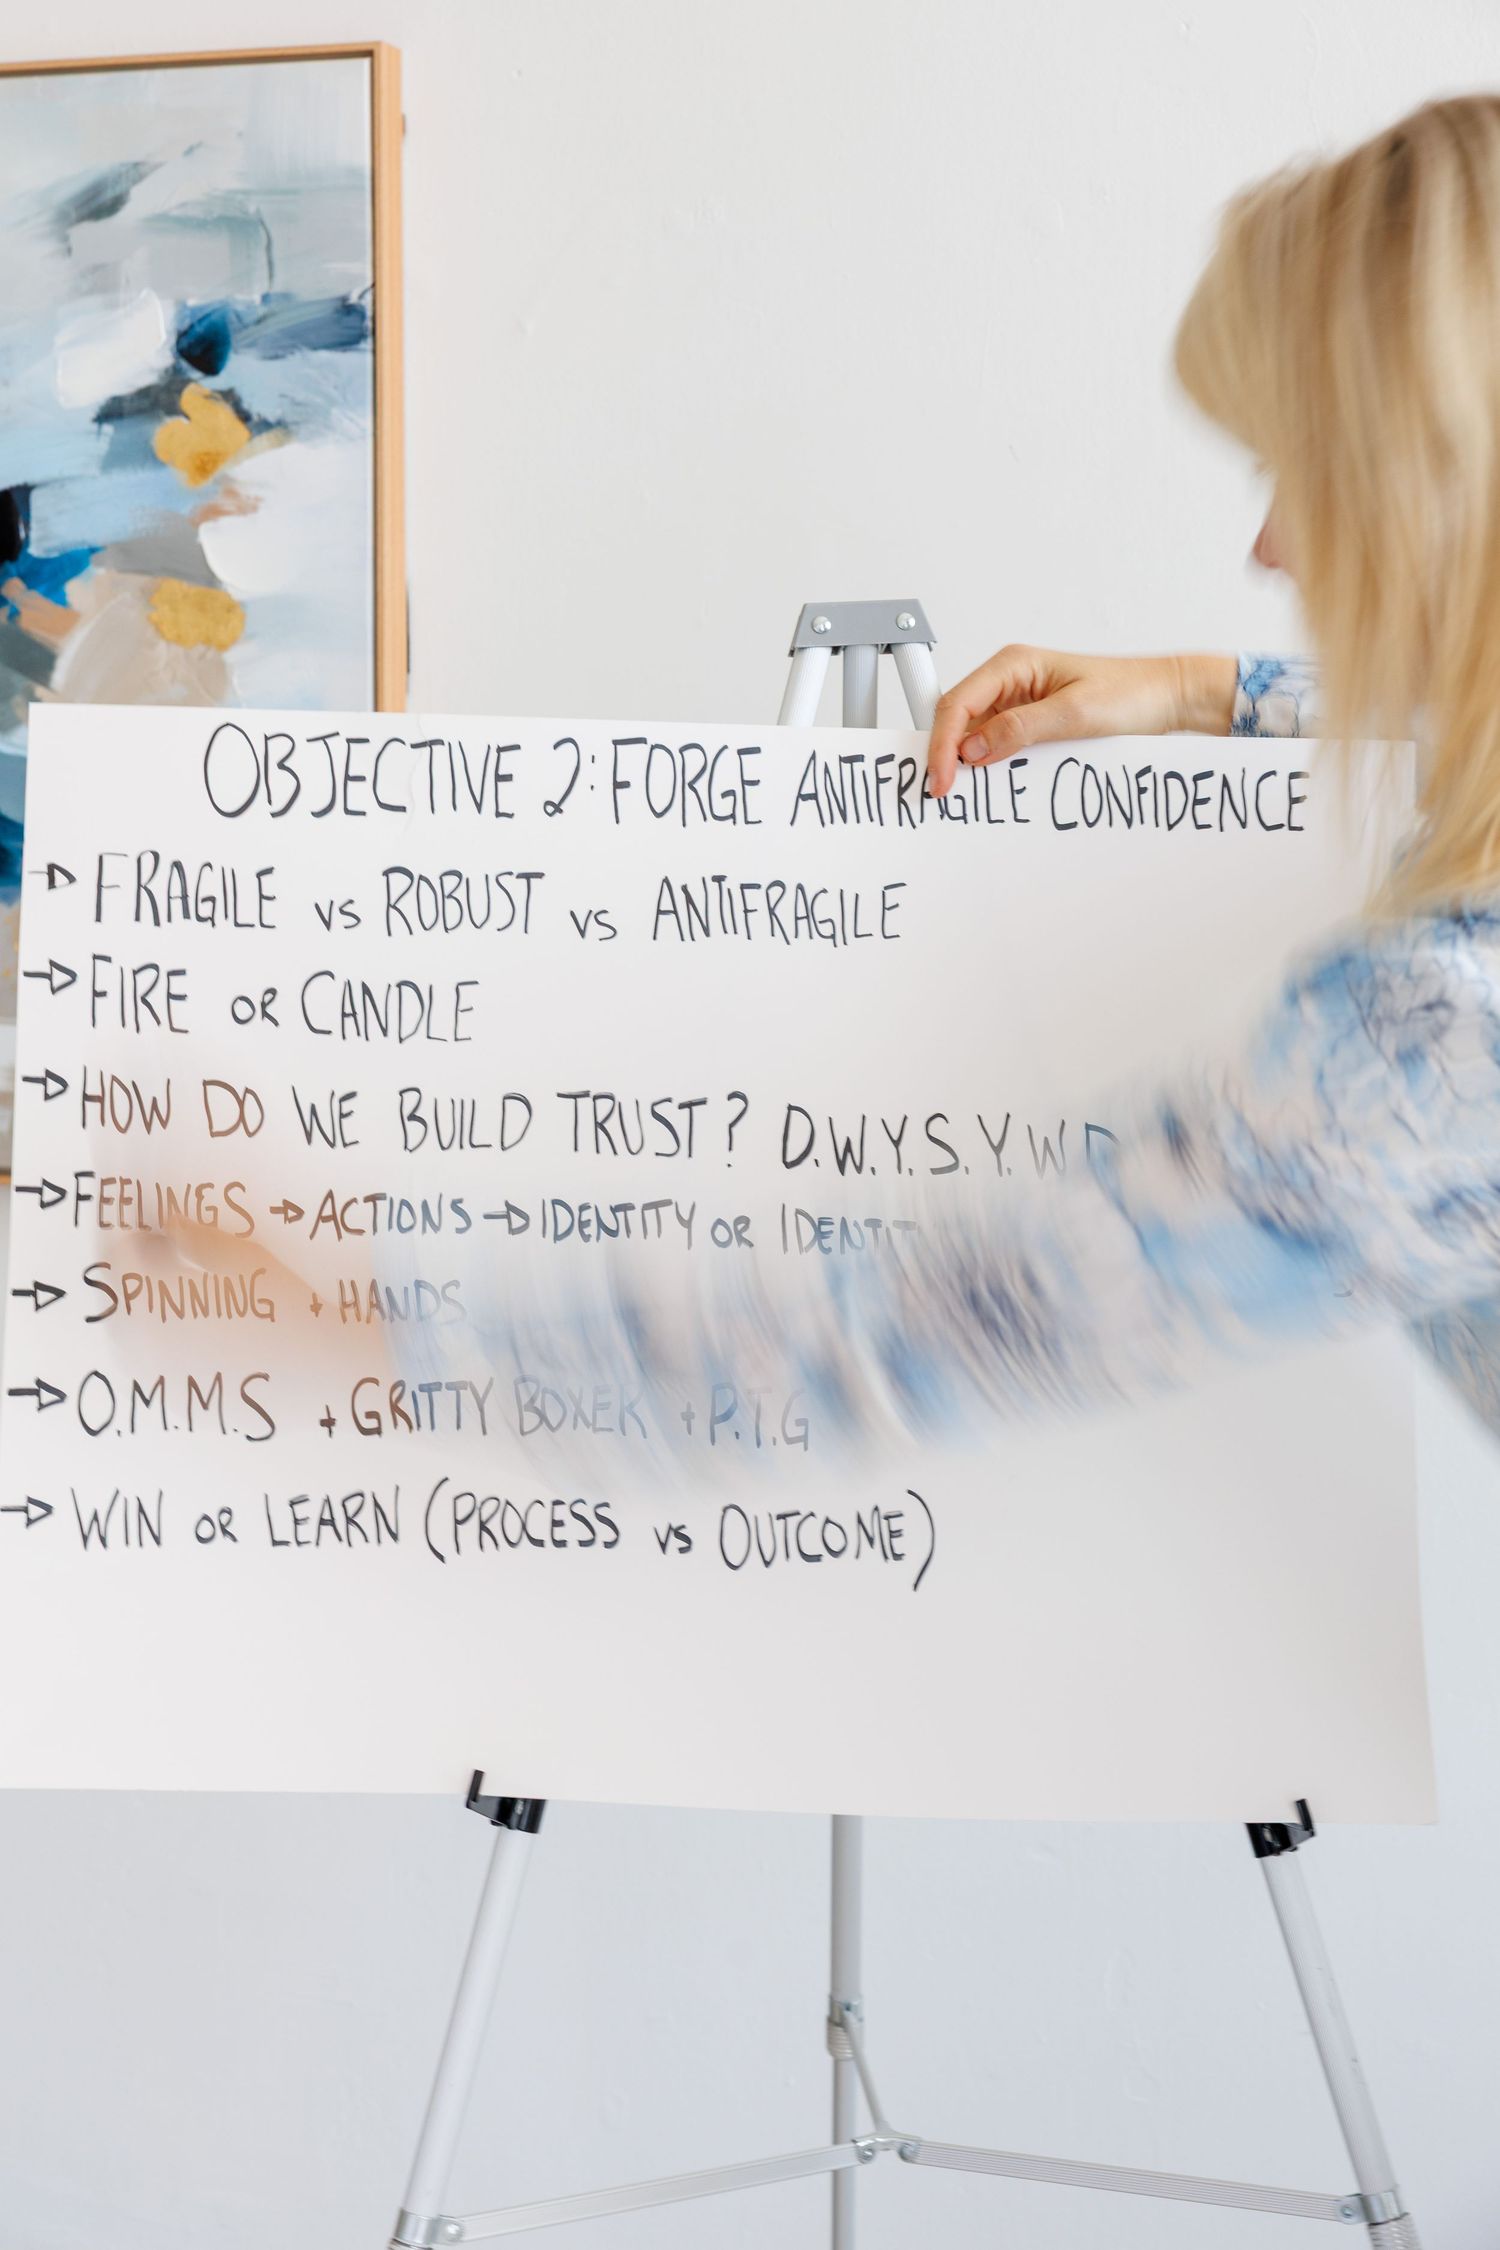 OBJECTIVE 2: FORGE ANTIFRAGILE CONFIDENCE
→ FRAGILE vs ROBUST vs ANTIFRAGILE
→ FIRE OR CANDLE
→ HOW DO WE BUILD TRUST? D.W.Y.S.Y.W.D
→ FEELINGS → ACTIONS → IDENTITY OR
→ SPINNING + HANDS
→ O.M.M.S + GRITTY BOXER + P.T.G
→ WIN OR LEARN (PROCESS vs OUTCOME)